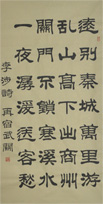 遠別秦城萬里游
亂山高下出商州
關門不鎖寒溪水
一夜潺湲送客愁
李涉詩 再宿武關